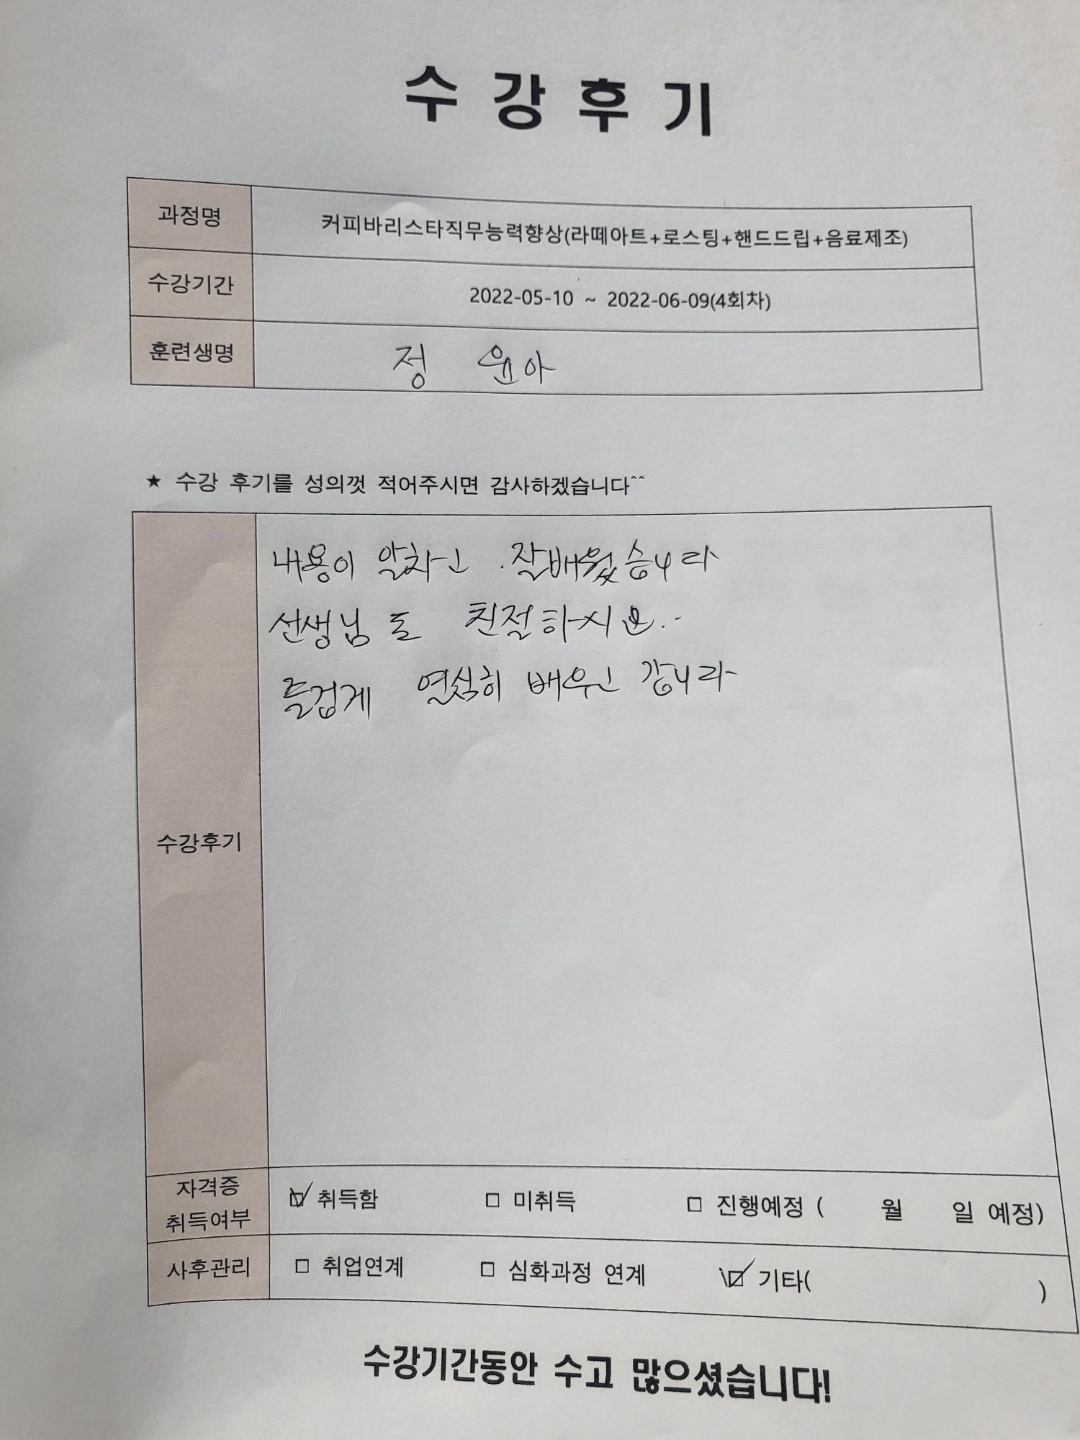 수강후기
과정명 커피바리스타직무능력향상(라떼아트+로스팅+핸드드립+음료제조)
수강기간 2022-05-10 ~ 2022-06-09(4회차)
훈련생명 정 윤아
★ 수강 후기를 성의껏 적어주시면 감사하겠습니다^^
내용이 알차고 잘배웠습니다
선생님도 친절하시고..
즐겁게 열심히 배우고 갑니다
수강후기
자격증 취득여부 ☑ 취득함 □ 미취득 □ 진행예정 ( 월 일 예정)
사후관리 □ 취업연계 □ 심화과정 연계 ☑ 기타( )
수강기간동안 수고 많으셨습니다!